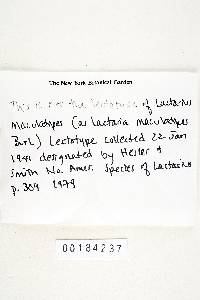 The New York Botanical Garden
This is not the lectotype of Lactarius
maculatipes (as Lactaria maculatipes
Burl.) Lectotype collected 22 Jan
1941 designated by Hesler &
Smith No. Amer. Species of Lactarius
p. 309 1979
00184237